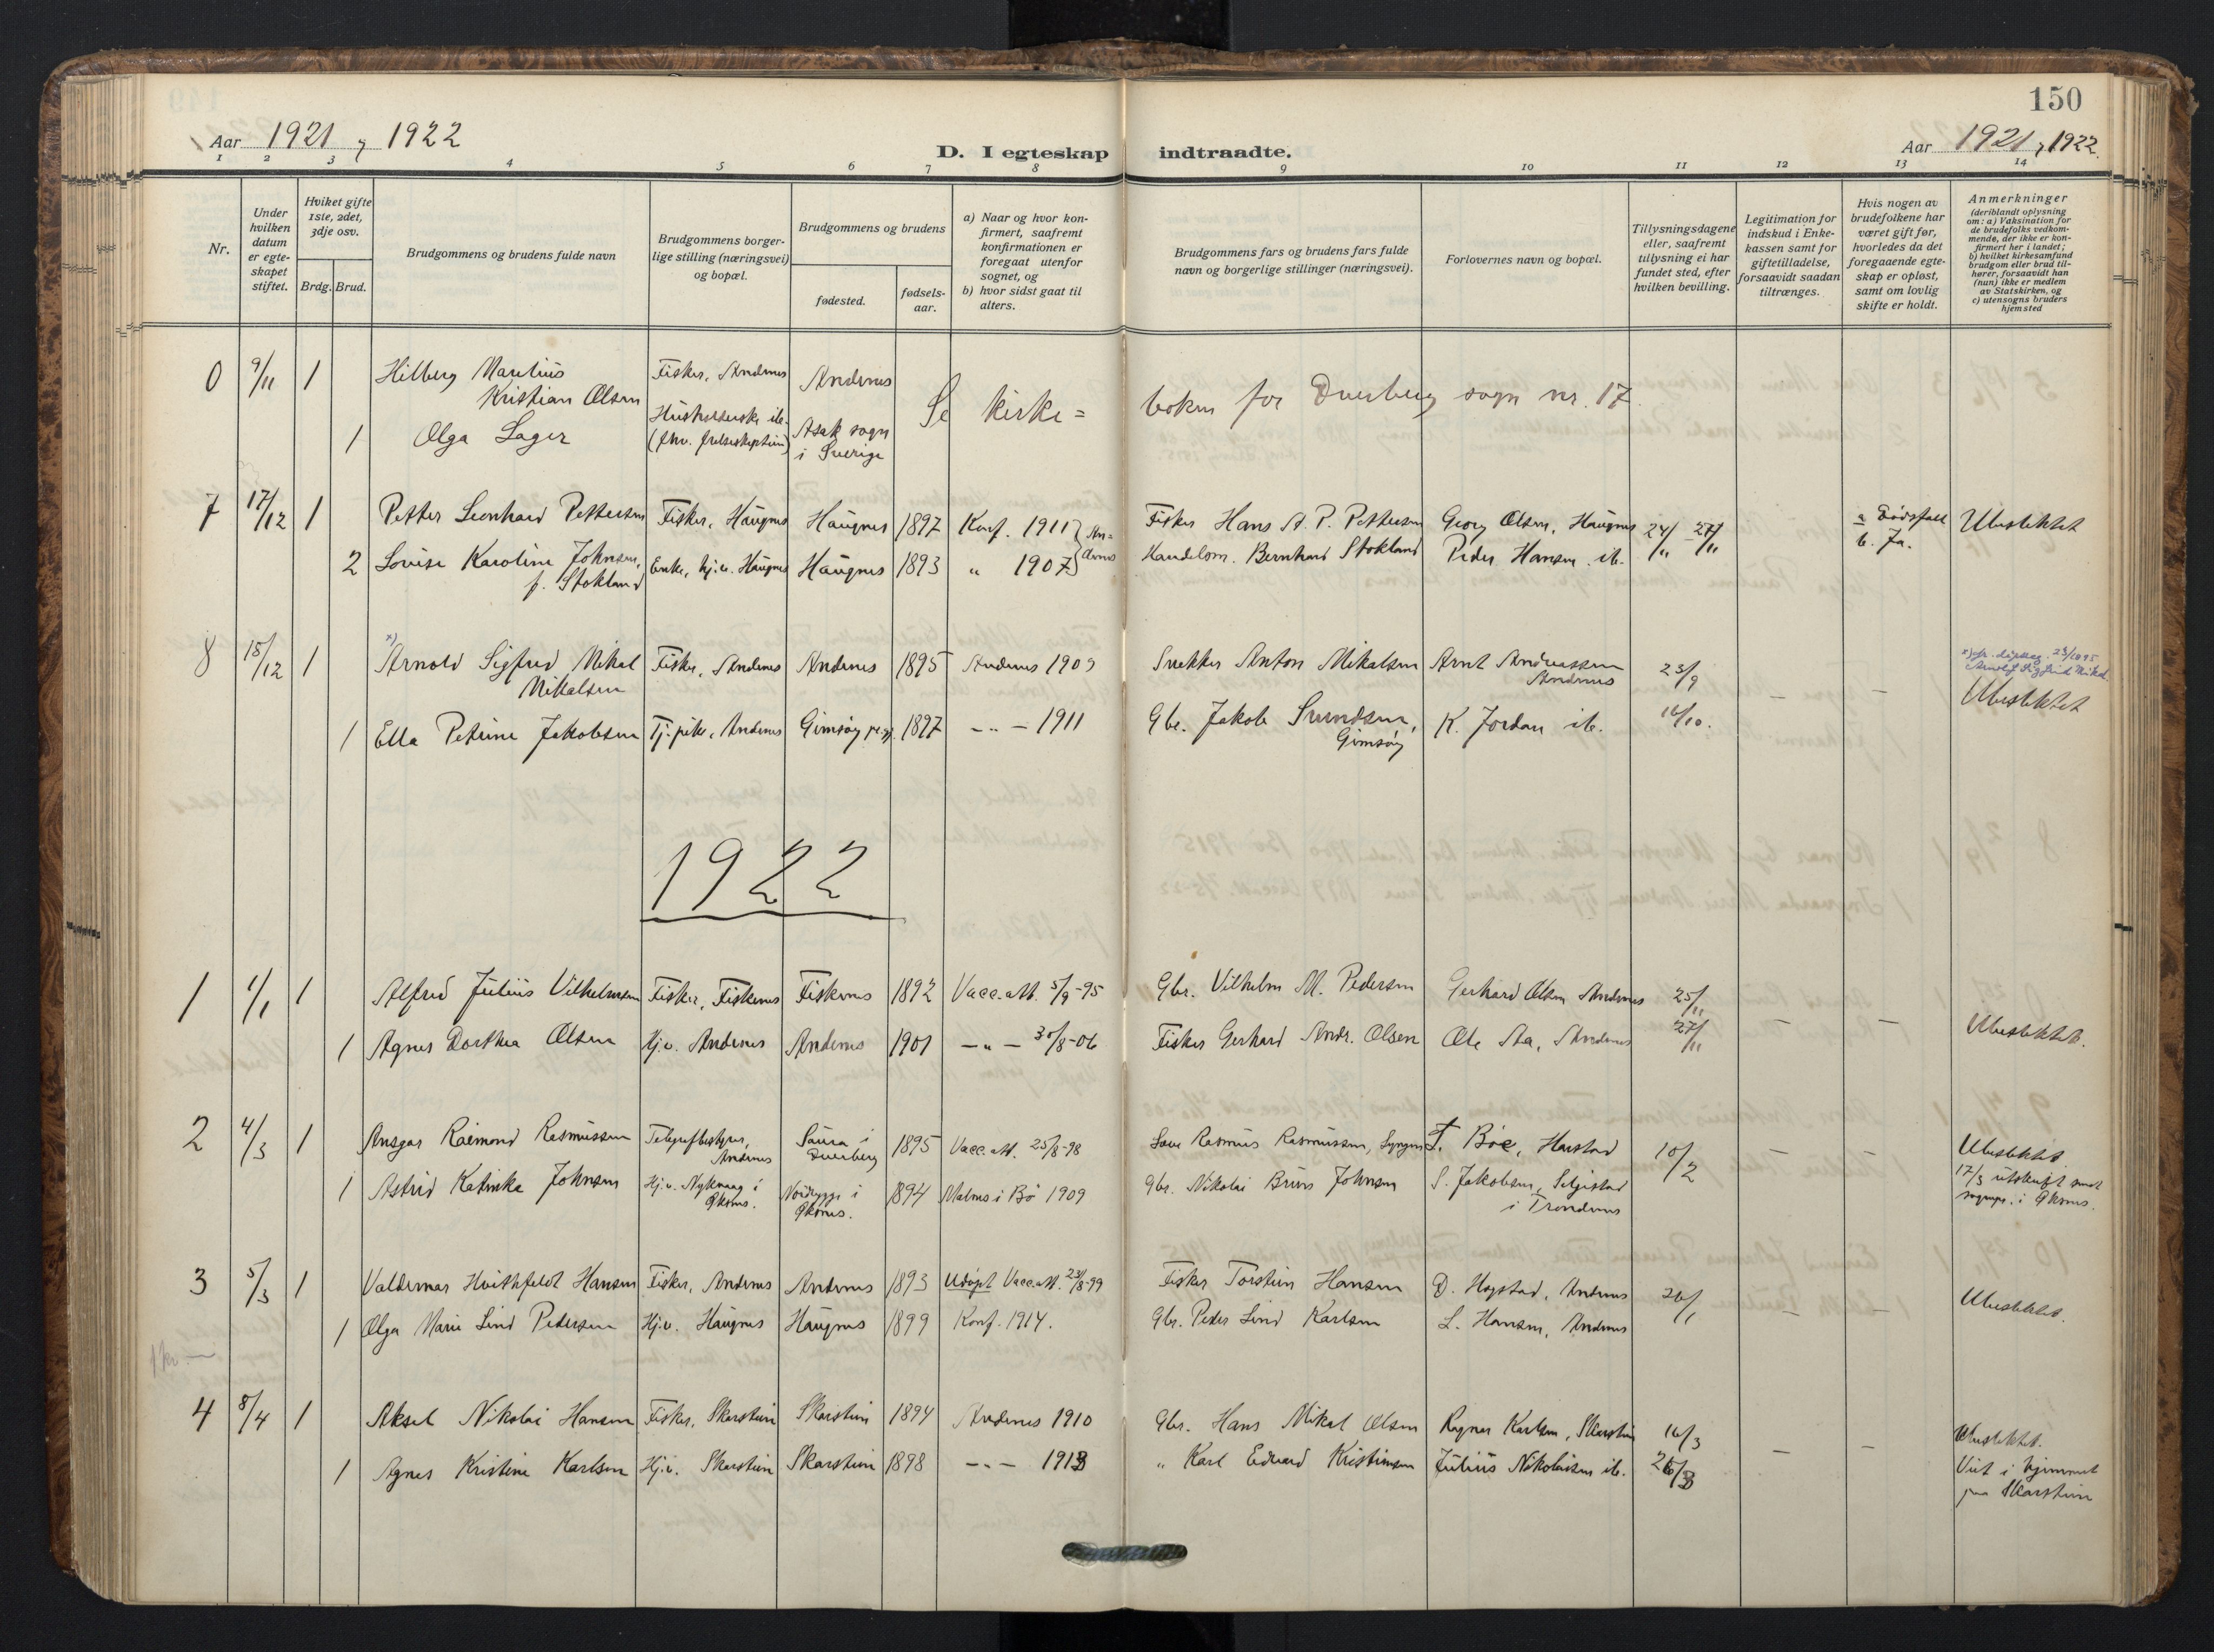 150
Aar 1921 og 1922
D. I egteskap indtraadte.
Aar 1921, 1922.
1 2 3 4 5 6 7 8 9 10 11 12 13 14
Nr.
Under hvilken datum er egteskapet stiftet.
Hviket gifte 1ste, 2det, 3dje osv.
Brdg. Brud.
Brudgommens og brudens fulde navn
Brudgommens borgerlige stilling (næringsvei) og bopæl.
Brudgommens og brudens
fødested.
fødselsaar.
a) Naar og hvor konfirmert, saafremt konfirmationen er foregaat utenfor sognet, og
b) hvor sidst gaat til alters.
Brudgommens fars og brudens fars fulde navn og borgerlige stillinger (næringsvei).
Forlovernes navn og bopæl.
Tillysningsdagene eller, saafremt tillysning ei har fundet sted, efter hvilken bevilling.
Legitimation for indskud i Enkekassen samt for giftetilladelse, forsaavidt saadan tiltrænges.
Hvis nogen av brudefolkene har været gift før, hvorledes da det foregaaende egteskap er opløst, samt om lovlig skifte er holdt.
Anmerkninger
(deriblandt oplysning om: a) Vaksination for de brudefolks vedkommende, der ikke er konfirmert her i landet; b) hvilket kirkesamfund brudgom eller brud tilhører, forsaavidt han (hun) ikke er medlem av Statskirken, og c) utensogns bruders hjemsted
0 9/11 1 Hilberg Marelius Kristian Olsen Fisker, Andenes Andenes
Se kirkeboken for Dverberg sogn nr. 17.
1 Olga Lager Husholderske ib. Asak sogn i Sverige
7 17/12 1 Petter Leonhard Pettersen Fisker, Haugnes Haugnes 1897 Konf. 1911 Andenes Fisker Hans A. P. Pettersen Georg Olsen, Haugnes 24/11 - 27/11 a Dødsfald b. Ja. Ubeslektet
2 Lovise Karoline Johnsen, f. Stokland Enke, hj.v. Haugnes Haugnes 1893 " 1907 Handelsm. Bernhard Stokland Peder Hansen ib.
8 15/12 1 x) Arnold Sigfred Mikal Mikalsen Fisker, Andenes Andenes 1895 Andenes 1909 Snekker Anton Mikalsen Arnt Andreassen Andenes 23/9
x) 23/1095 Sigfred Mikal
Ubeslektet
1 Ella Petrine Jakobsen Tj.pike, Andenes Gimsøy 1897 -"- 1911 Gbr. Jakob Svendsen, Gimsøy K. Jordan ib. 16/10. - -
1922
1 1/1 1 Alfred Julius Vilhelmsen Fisker, Fiskenes Fiskenes 1892 Vacc.att. 5/9-95 Gbr. Vilhelm M. Pedersen Gerhard Olsen Andenes 25/11
1 Agnes Dorthea Olsen Hj.v. Andenes Andenes 1901 -"- 30/8-06 Fisker Gerhard Andr. Olsen Ole Aa, Andenes 27/11 - - Ubeslektet.
2 4/3 1 Ansgar Raimond Rasmussen Telegrafbestyrer, Andenes Saura i Dverberg 1895 Vacc.att. 25/8-98 Rasmus Rasmussen, T. Bøe, Harstad 10/2 - - Ubeslektet
1 Astrid Katinka Johnsen Hj.v. Nykvaag i Øksnes. i Øksnes. 1894 Malnes i Bø 1909 Gbr. Nikolai Bruns Johnsen S. Jakobsen, i Trondenes
17/3 utskrift sendt sognepr. i Øksnes.
3 5/3 1 Valdemar Hvithfeldt Hansen Fisker, Andenes Andenes 1893 Udøpt Vacc.att. 23/8-99 Fisker Torstein Hansen D. Hogstad, Andenes 26/1 - - Ubeslektet.
1 Olga Marie Lind Pedersen Hj.v. Haugnes Haugnes 1899 Konf. 1914. Gbr. Peder Lind Karlsen L. Hansen, Andenes
1 kr. —
4 8/4 1 Aksel Nikolai Hansen Fisker, Skarstein Skarstein 1894 Andenes 1910 Gbr. Hans Mikal Olsen Ragnar Karlsen, Skarstein 16/3 - - Ubeslektet.
1 Agnes Kristine Karlsen Hj.v. Skarstein Skarstein 1898 -"- 1913 " Karl Edvard Kristiansen Julius Nikolaisen ib. 26/3
Viet i hjemmet paa Skarstein